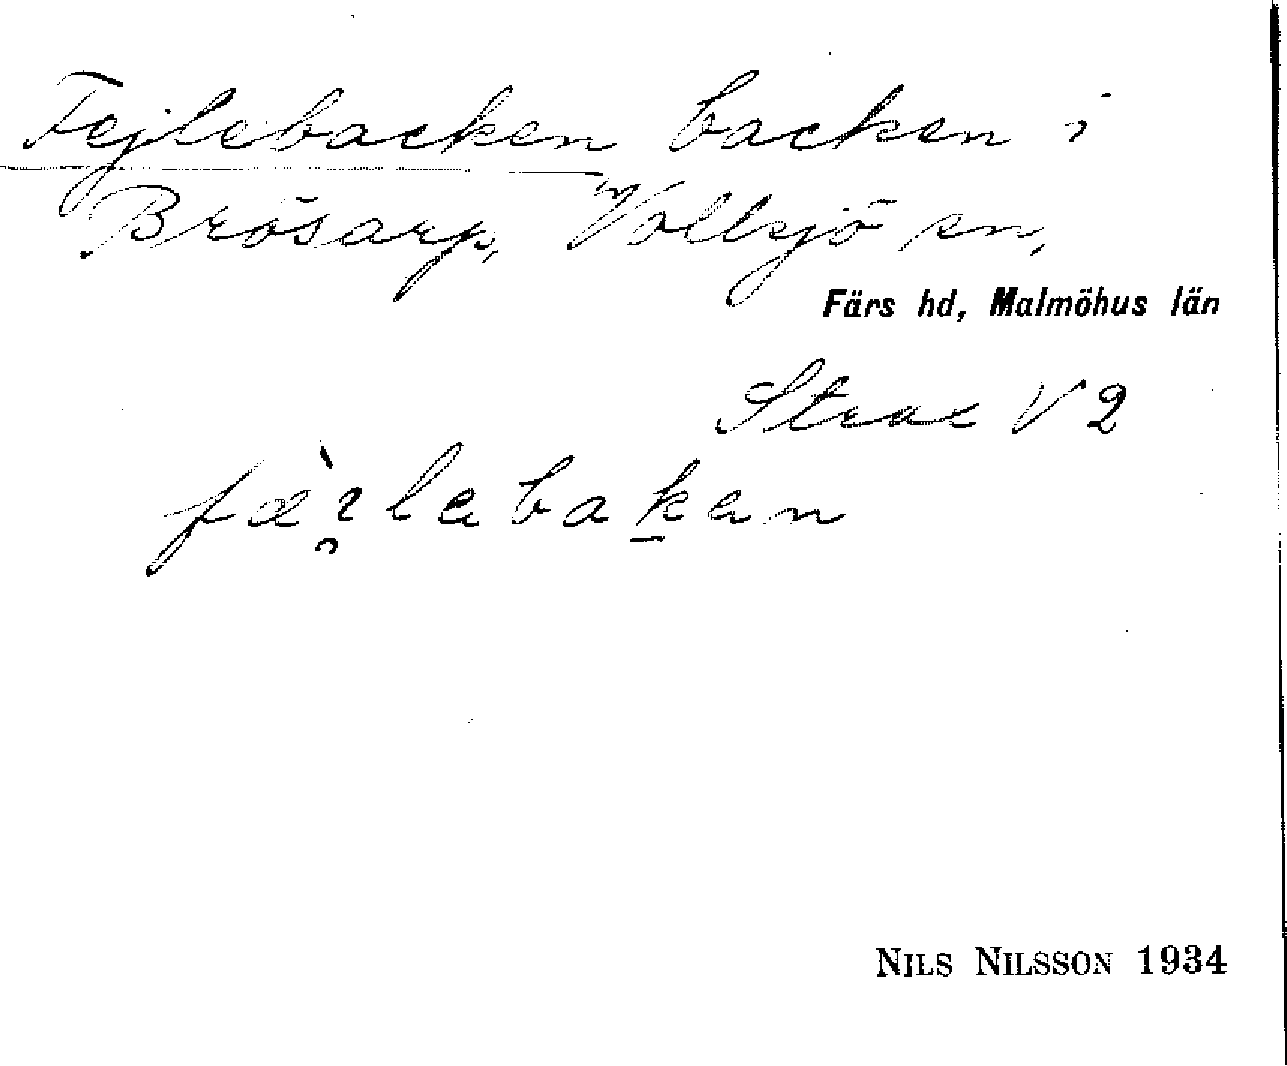 Fejlebacken backen i
Brösarp, Vollsjö sn,
Färs hd, Malmöhus län
V 2
fæ̀ɪ̯lebaḵen
NILS NILSSON 1934